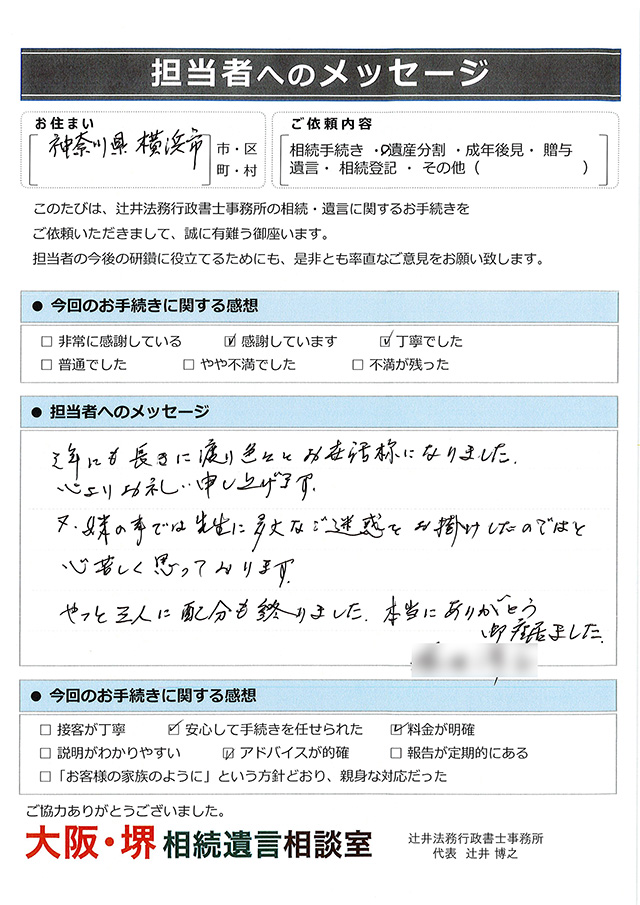 担当者へのメッセージ
お住まい
神奈川県 横浜市
市・区
町・村
ご依頼内容
相続手続き ・遺産分割 ・成年後見・ 贈与
遺言・ 相続登記 ・ その他 ( )
このたびは、辻井法務行政書士事務所の相続・遺言に関するお手続きを
ご依頼いただきまして、誠に有難う御座います。
担当者の今後の研鑽に役立てるためにも、是非とも率直なご意見をお願い致します。
● 今回のお手続きに関する感想
□ 非常に感謝している ☑ 感謝しています ☑ 丁寧でした
□ 普通でした □ やや不満でした □ 不満が残った
● 担当者へのメッセージ
年にも長きに渡り色々とお世話様になりました.
心よりお礼い申し上げます.
又、妹の事では先生に多大なご迷惑をお掛けしたのではと
心苦しく思っております.
やっと三人に配分も終りました. 本当にありがとう
御座居ました.
● 今回のお手続きに関する感想
□ 接客が丁寧 ☑ 安心して手続きを任せられた ☑ 料金が明確
□ 説明がわかりやすい ☑ アドバイスが的確 □ 報告が定期的にある
□ 「お客様の家族のように」という方針どおり、親身な対応だった
ご協力ありがとうございました。
大阪・堺 相続遺言相談室
辻井法務行政書士事務所
代表 辻井 博之